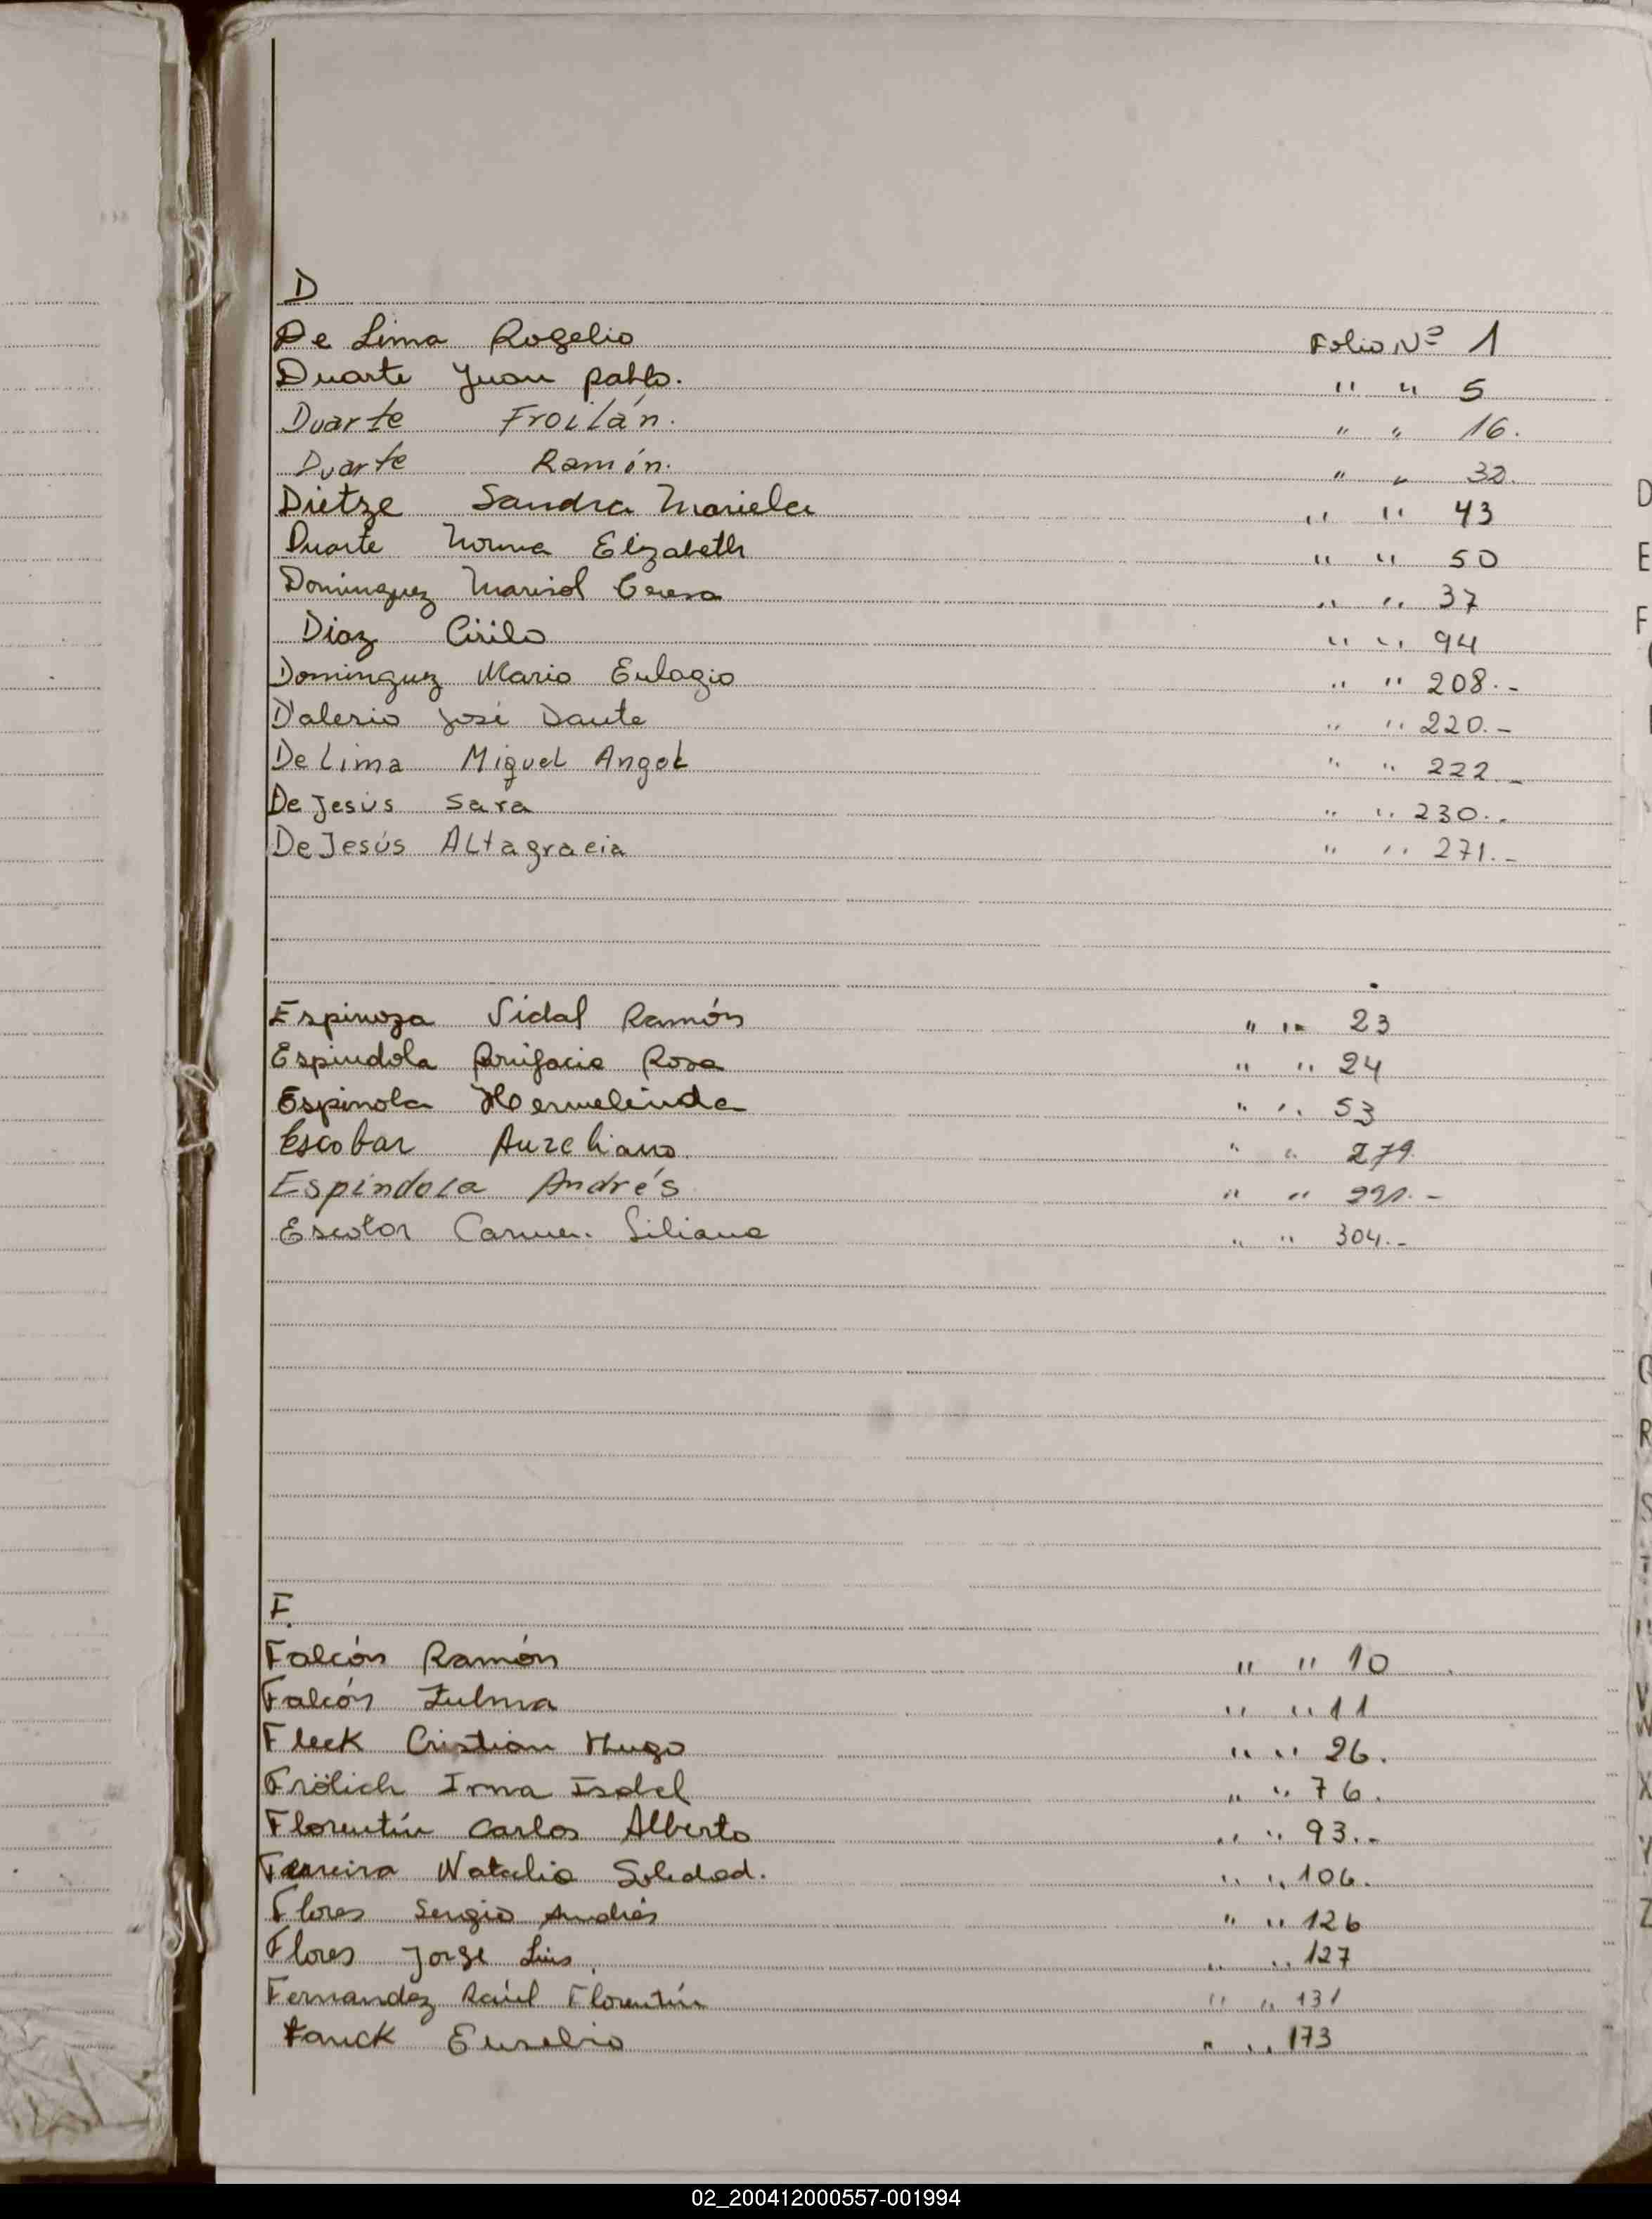 D
De Lima Rogelio Folio Nº 1
Duarte Juan pablo. " " 5
Duarte Froilán. " " 16.
Duarte Ramón. " " 32.
Dietze Sandra Mariela " " 43
Duarte Norma Elizabeth " " 50
Dominguez Marisol Teresa " " 37
Diaz Cirilo " " 94
Dominguez Mario Eulogio " " 208.-
D'alerio José Dante " " 220.-
De Lima Miguel Angel " " 222.-
De Jesús Sara " " 230.-
De Jesús Altagracia " " 271.-
Espinoza Vidal Ramón " " 23
Espindola Bonifacio Rosa " " 24
Espinola Hermelinda " " 53
Escobar Aureliano. " " 279.
Espíndola Andrés " " 291.-
Escobar Carmen Liliana " " 304.-
F.
Falcón Ramón " " 10
Falcón Zulma " " 11
Fleck Cristian Hugo " " 26.
Frölich Irma Isabel " " 76.
Florentín Carlos Alberto " " 93.-
Ferreira Natalia Soledad. " " 106.
Flores Sergio Andrés " " 126
Flores Jorge Luis. " " 127
Fernandez Raúl Florentín " " 131
Fanck Eusebio " " 173
D
E
F
Q
R
S
T
U
V
W
X
Y
Z
02_200412000557-001994